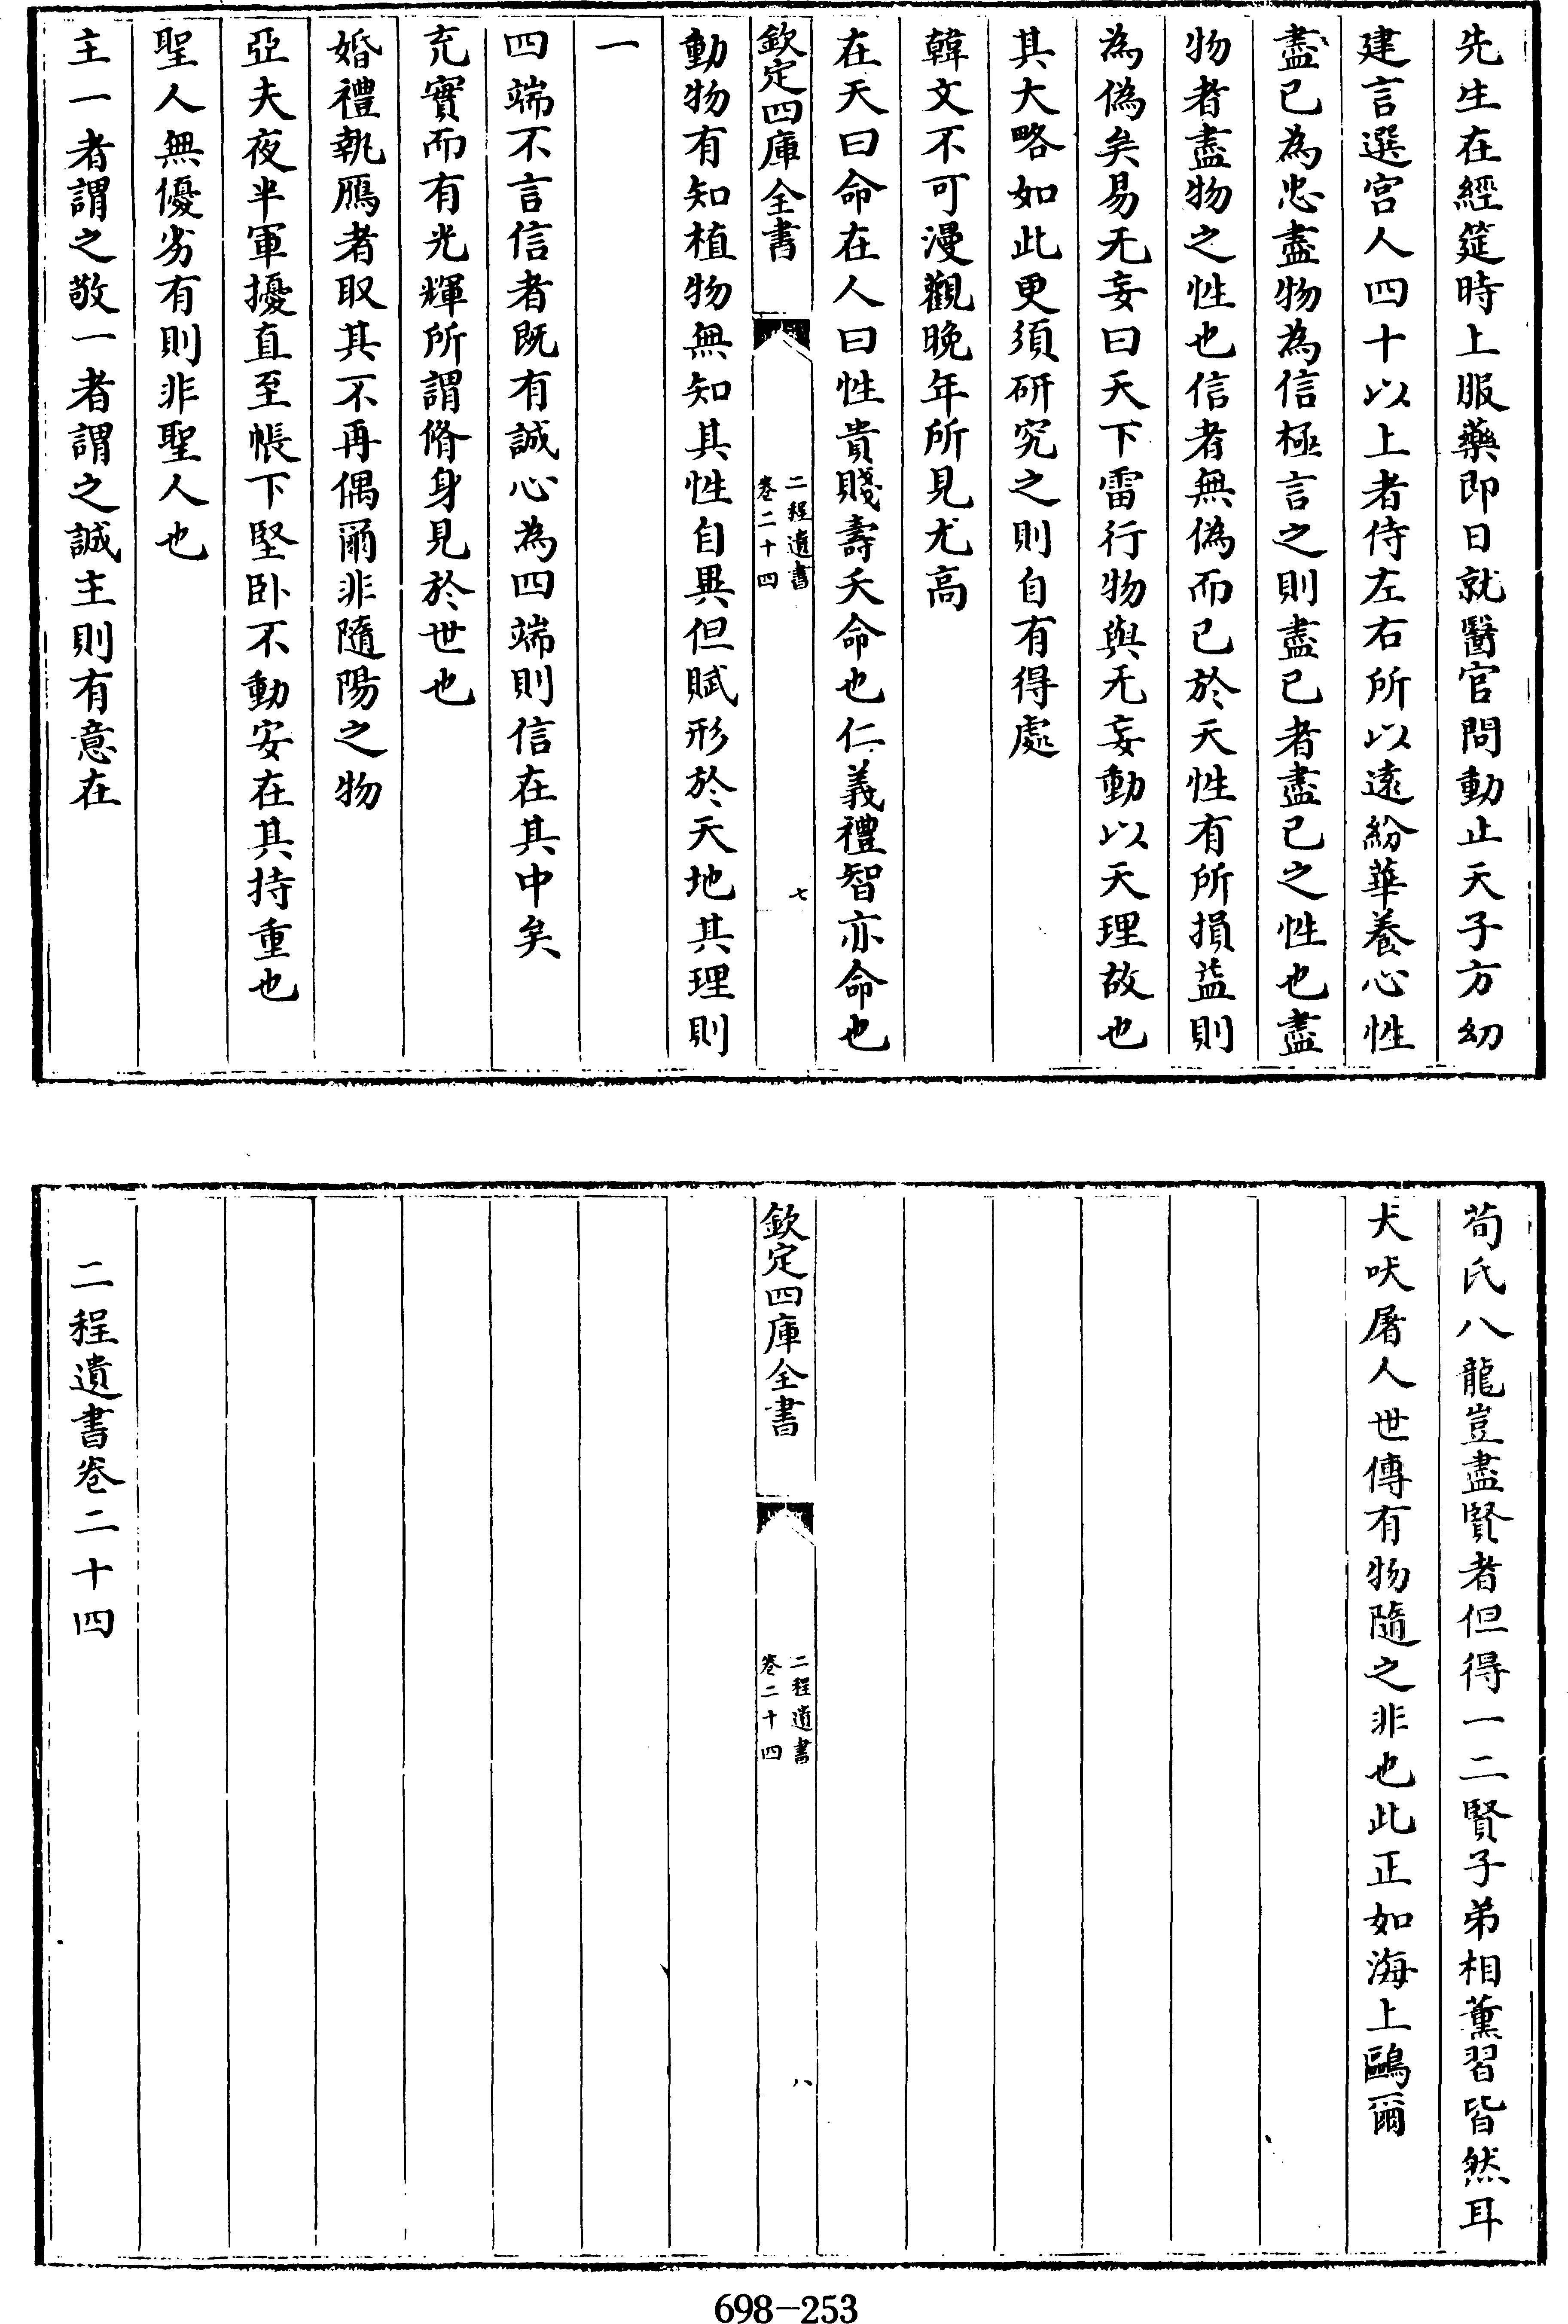 先生在經筵時上服藥即日就醫官問動止天子方幼
建言選宮人四十以上者侍左右所以遠紛華養心性
盡己為忠盡物為信極言之則盡己者盡己之性也盡
物者盡物之性也信者無偽而已於天性有所損益則
為偽矣易无妄曰天下雷行物與无妄動以天理故也
其大略如此更須研究之則自有得處
韓文不可漫觀晚年所見尤高
在天曰命在人曰性貴賤壽夭命也仁義禮智亦命也
欽定四庫全書
二程遺書
卷二十四
七
動物有知植物無知其性自異但賦形於天地其理則
一
四端不言信者既有誠心為四端則信在其中矣
充實而有光輝所謂脩身見於世也
婚禮執鴈者取其不再偶爾非隨陽之物
亞夫夜半軍擾直至帳下堅卧不動安在其持重也
聖人無優劣有則非聖人也
主一者謂之敬一者謂之誠主則有意在
荀氏八龍豈盡賢者但得一二賢子弟相薰習皆然耳
犬吠屠人世傳有物隨之非也此正如海上鷗爾
欽定四庫全書
二程遺書
卷二十四
八
二程遺書卷二十四
698-253